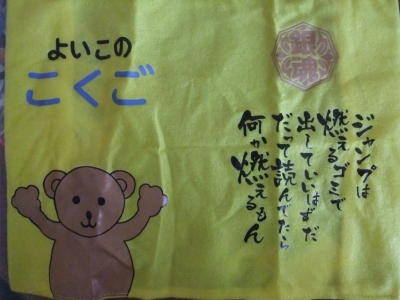 よいこの
こくご
銀魂
ジャンプは
燃えるゴミで
出していいはずだ
だって読んでたら
何か燃えるもん